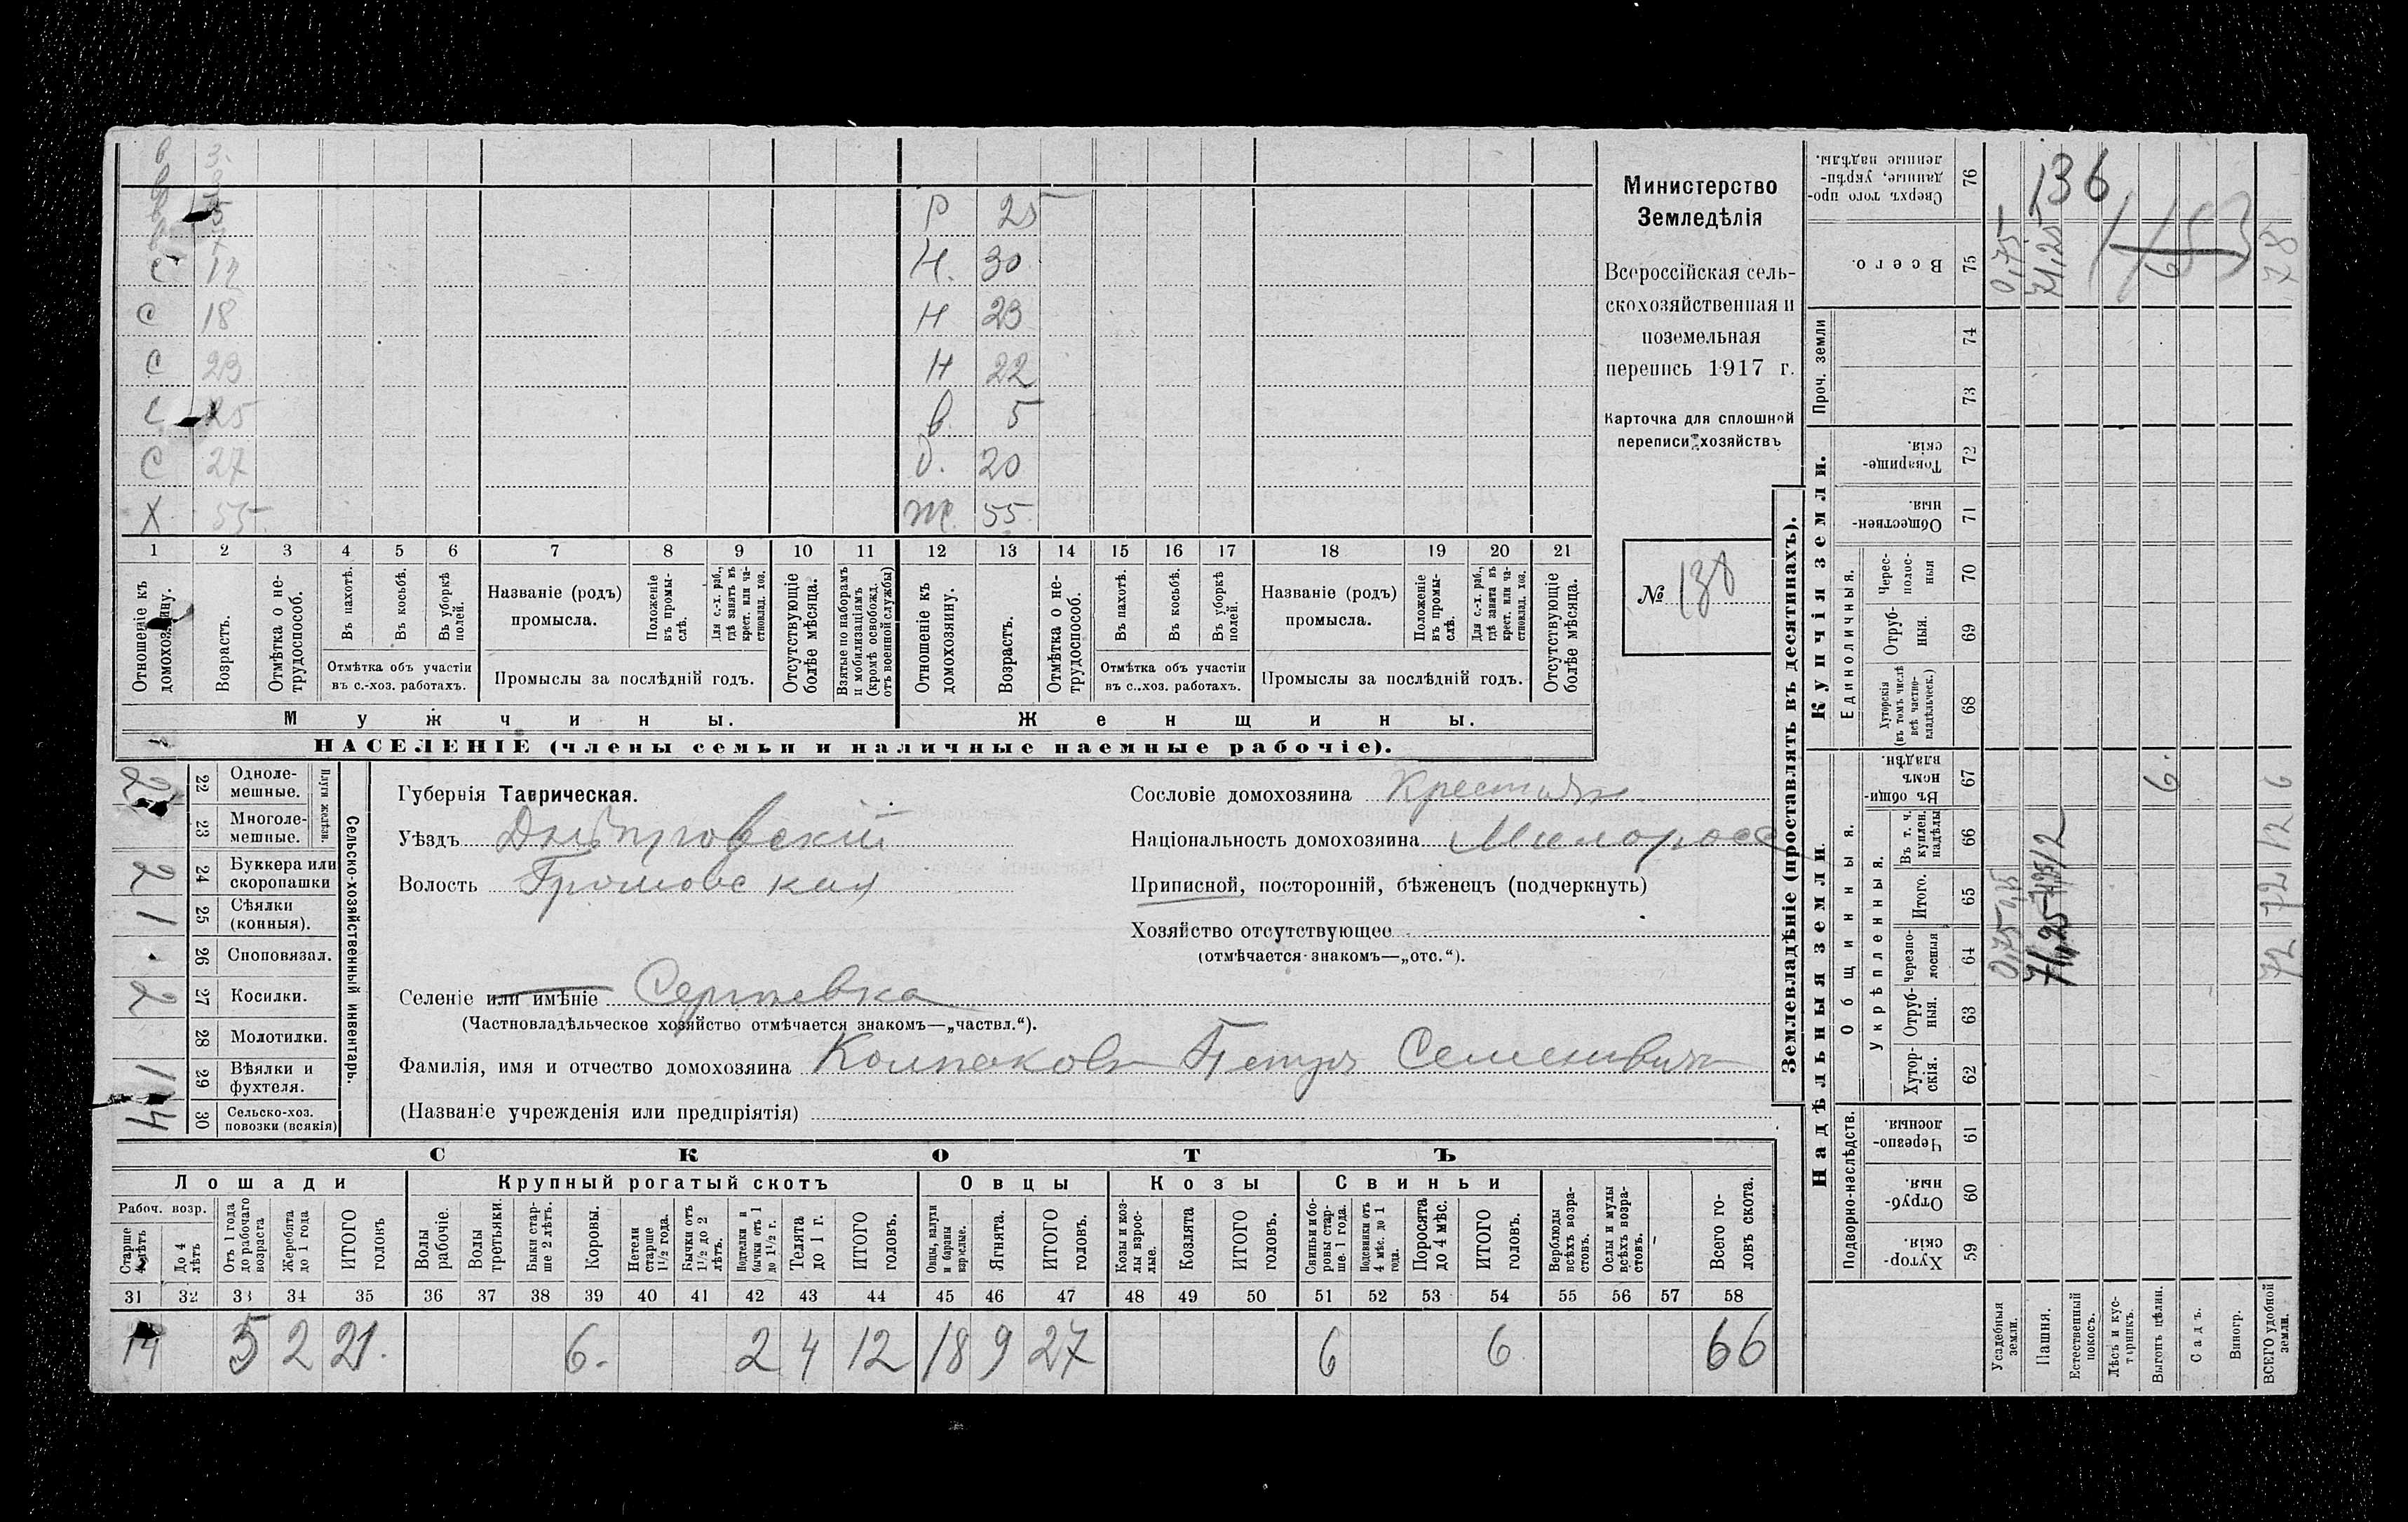 в 3.
в
в 5
в
С 12
С 18
С 23
С 25
С 27
Х 55
Р 25
Н. 30
Н 23
Н 22
в. 5
д. 20
Ж. 55
1 2 3 4 5 6 7 8 9 10 11 12 13 14 15 16 17 18 19 20 21
Отношеніе къ домохозяину.
Возрастъ.
Отмѣтка о не-трудоспособ.
Въ пахотѣ.
Въ косьбѣ.
Въ уборкѣ полей.
Отмѣтка объ участіи
въ с.-хоз. работахъ.
Названіе (родъ)
промысла.
Положеніе въ промы-слѣ.
Для с.-х. раб., гдѣ занятъ въ крест. или ча-стновлад. хоз.
Промыслы за послѣдній годъ.
Отсутствующіе болѣе мѣсяца.
Взятые по наборамъ и мобилизаціямъ (кромѣ освобожд. отъ военной службы)
Отношеніе къ домохозяину.
Возрастъ.
Отмѣтка о не-трудоспособ.
Въ пахотѣ.
Въ косьбѣ.
Въ уборкѣ полей.
Отмѣтка объ участіи
въ с..хоз. работахъ.
Названіе (родъ)
промысла.
Положеніе въ промы-слѣ.
Для с.-х. раб., гдѣ занята въ крест. или ча-стновлад. хоз.
Промыслы за послѣдній годъ.
Отсутствующіе болѣе мѣсяца.
Мужчины.
Женщины.
НАСЕЛЕНІЕ (члены семьи и наличные наемные рабочіе).
Министерство
Земледѣлія
Всероссійская сель-
скохозяйственная и
поземельная
перепись 1917 г.
Карточка для сплошной
переписи хозяйствъ
№ 138
Сельско-хозяйственный инвентарь.
Плуги желѣзн.
2 22 Одноле-мешные.
23 Многоле-мешные.
2 24 Буккера или скоропашки
1 25 Сѣялки (конныя).
26 Сноповязал.
2 27 Косилки.
28 Молотилки.
1 29 Вѣялки и фухтеля.
4 30 Сельско-хоз. повозки (всякія)
Губернія Таврическая.
Уѣздъ Днѣпровскій
Волость Громовская
Селеніе или имѣніе Сергѣевка
(Частновладѣльческое хозяйство отмѣчается знакомъ—„частвл.“).
Фамилія, имя и отчество домохозяина Колпаковъ Петръ Семеновичъ
(Названіе учрежденія или предпріятія)
Сословіе домохозяина Крестьян.
Національность домохозяина Малоросс
Приписной, посторонній, бѣженецъ (подчеркнуть)
Хозяйство отсутствующее
(отмѣчается знакомъ—„отс.“).
СКОТЪ
Лошади
Рабоч. возр.
Старше 4 лѣтъ
До 4 лѣтъ
Отъ 1 года до рабочаго возраста
Жеребята до 1 года
ИТОГО головъ
Крупный рогатый скотъ
Волы рабочіе.
Волы третьяки.
Быки стар-ше 2 лѣтъ.
Коровы.
Нетели старше 1½ года.
Бычки отъ 1½ до 2 лѣтъ.
Подтелки и бычки отъ 1 до 1½ г.
Телята до 1 г.
ИТОГО головъ.
Овцы
Овцы, валухи и бараны взрослые.
Ягнята.
ИТОГО головъ.
Козы
Козы и коз-лы взрос-лые.
Козлята
ИТОГО головъ.
Свиньи
Свиньи и бо-ровы стар-ше 1 года.
Подсвинки отъ 4 мѣс. до 1 года.
Поросята до 4 мѣс.
ИТОГО головъ.
Верблюды всѣхъ возра-стовъ.
Ослы и мулы всѣхъ возра-стовъ.
Всего го-ловъ скота.
31 32 33 34 35 36 37 38 39 40 41 42 43 44 45 46 47 48 49 50 51 52 53 54 55 56 57 58
14 5 2 21. 6. 2 4 12 18 9 27 6 6 66
Землевладѣніе (проставлять въ десятинахъ).
Надѣльныя земли.
Купчія земли.
Проч. земли
Подворно-наслѣдств.
Общинныя.
Укрѣпленныя.
Единоличныя.
76 Сверхъ того про-данные, укрѣп-ленные надѣлы.
75 Всего.
74
73
72 Товарище-скія.
71 Обществен-ныя.
70 Черес-полос-ныя
69 Отруб-ныя.
68 Хуторскія (въ томъ числѣ всѣ частно-владѣльческ.)
67 Въ общин-номъ владѣн.
66 Въ т. ч. куплен. надѣлы
65 Итого.
64 Черезпо-лосныя
63 Отруб-ныя.
62 Хутор-скія.
61 Черезпо-лосныя
60 Отруб-ныя.
59 Хутор-скія.
Усадебныя земли.
Пашня.
Естественный покосъ.
Лѣсъ и кус-тарникъ.
Выгонъ цѣлин.
Садъ.
Виногр.
ВСЕГО удобной земли.
136
0,75
71,25
6
78
6.
6
0,75
71,25
12
72
72
12